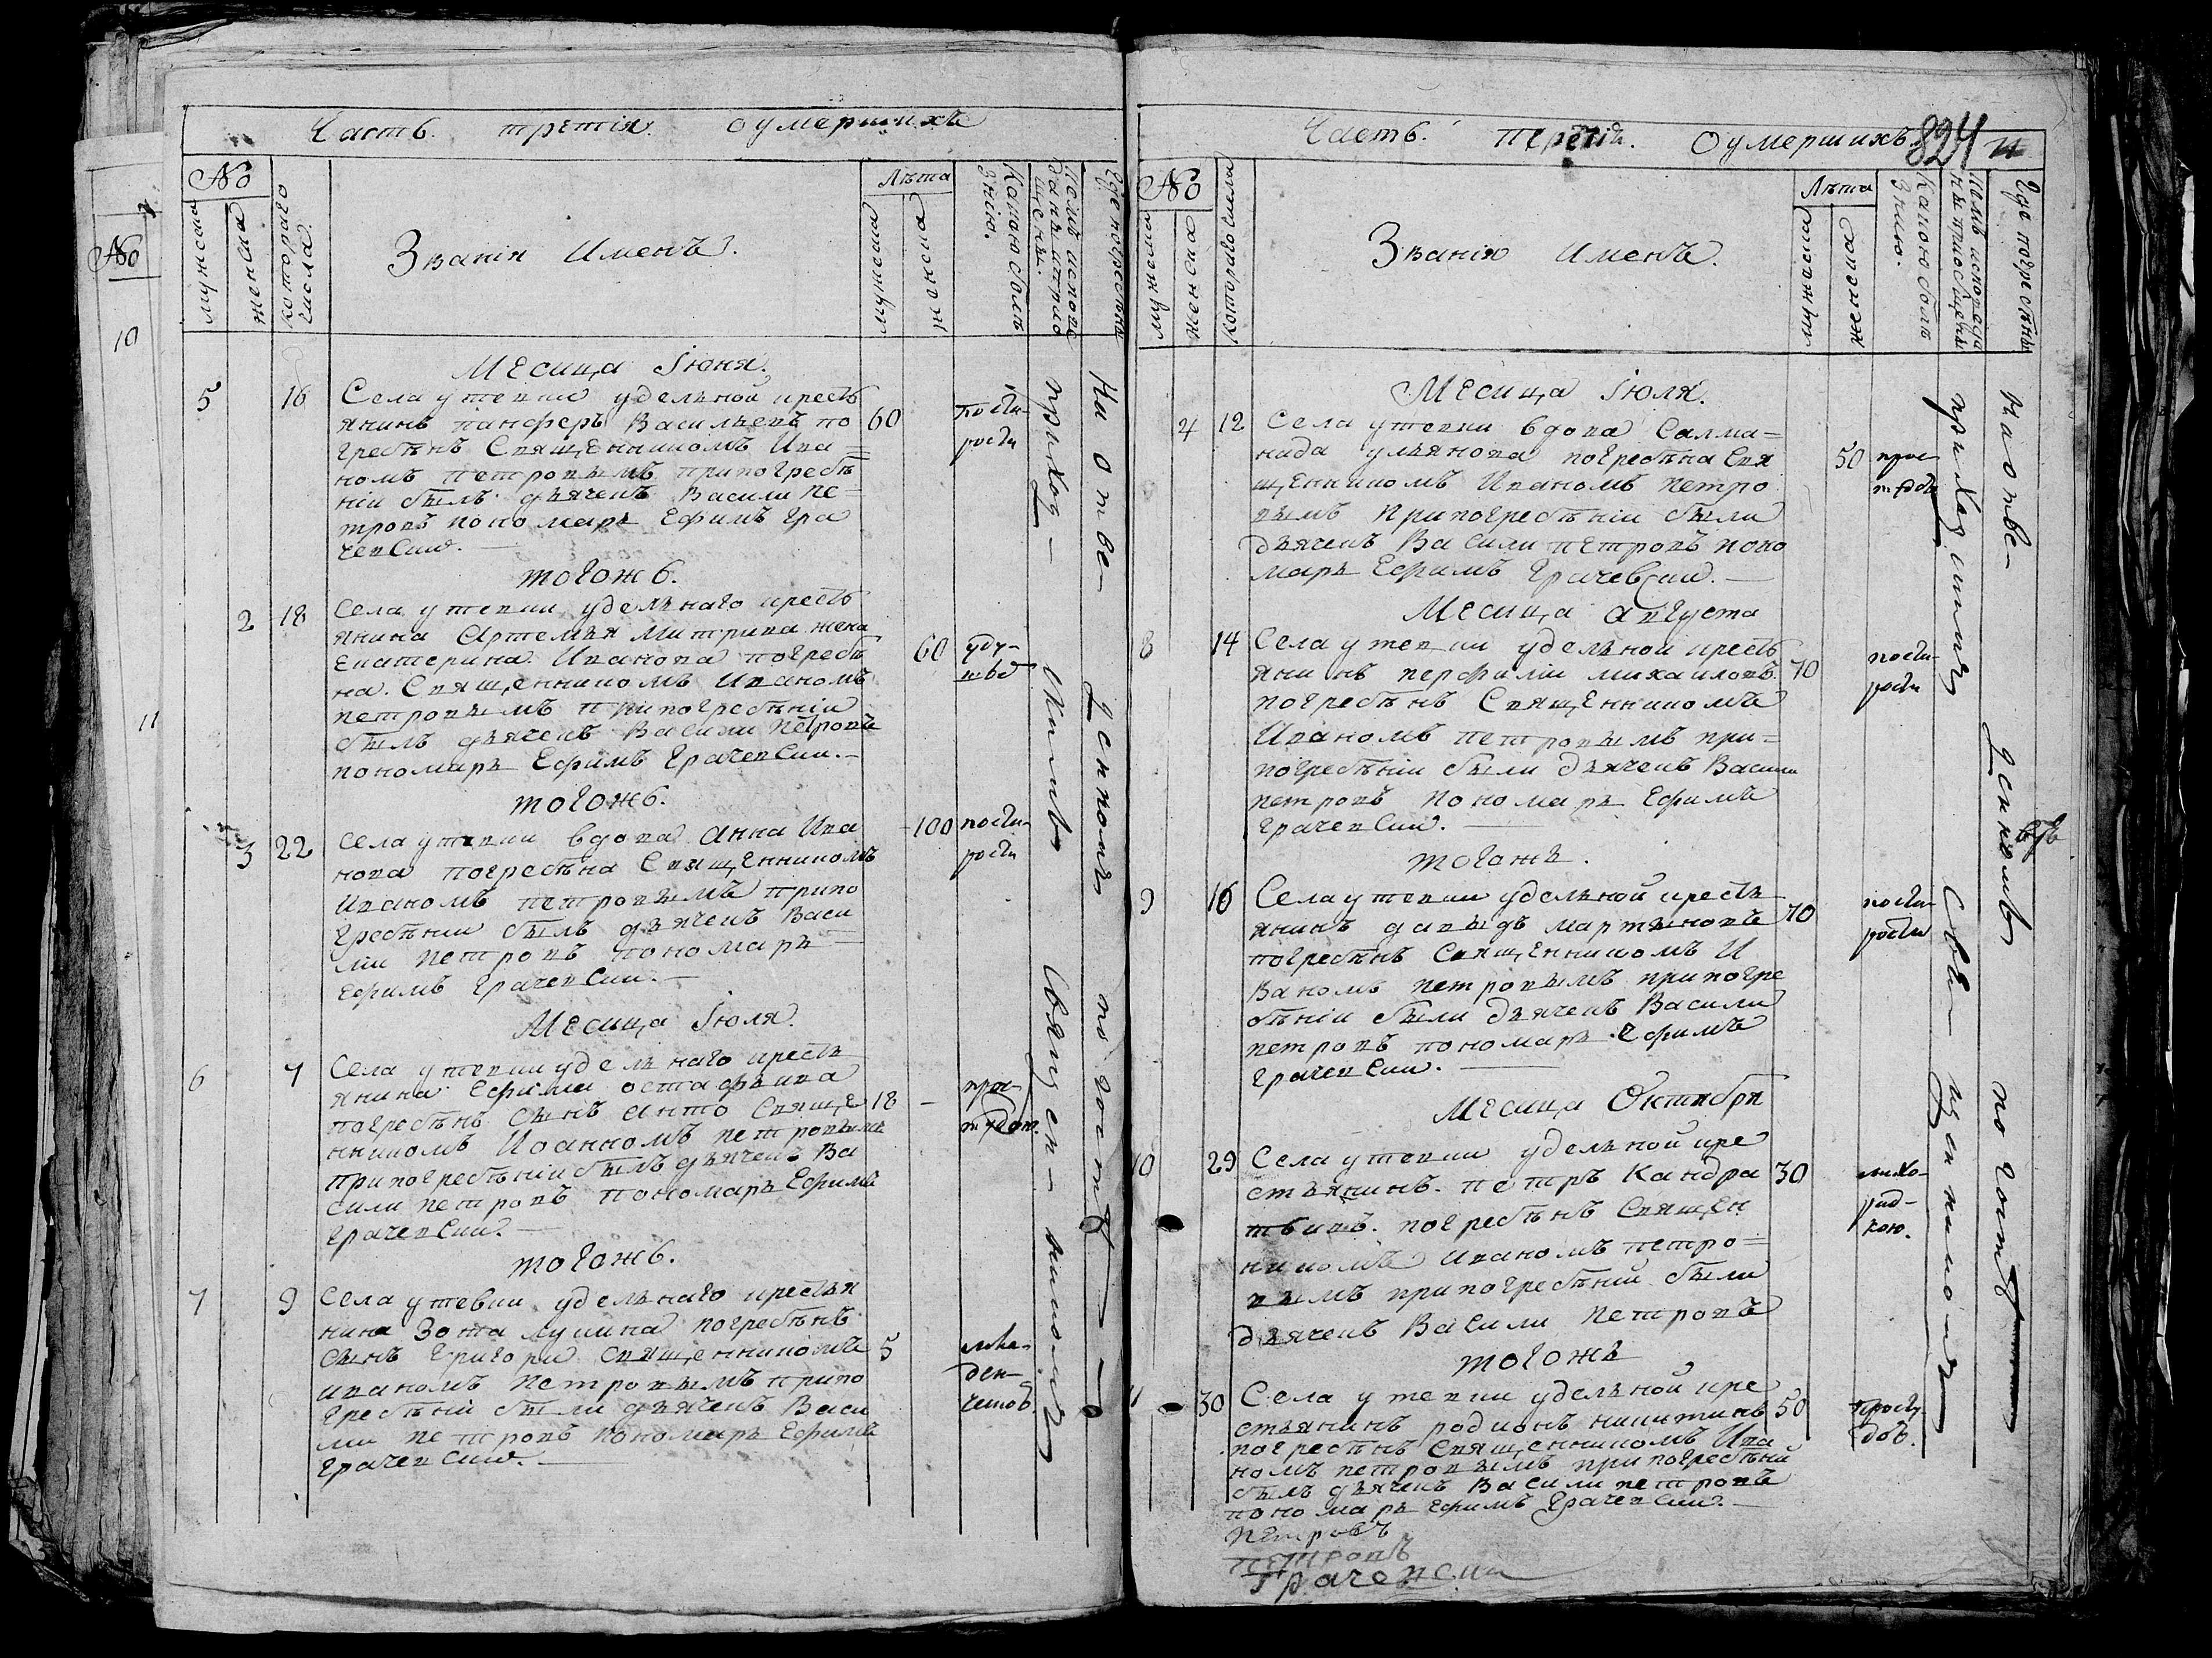 Часть третія оумершихъ
№
мужеска
женска
котораго числа
Званія именъ.
Лѣта
мужеска
женска
Какою болѣзнію.
Кемъ исповѣданъ и приобщены.
Где погребены
Месица Іюня.
5 16 Села утевки удельной кресть
янинъ панферъ Васильевъ по 60 постарости
гребѣнъ Священникомъ Ива=
номъ петровымъ припогребѣ
ніи былъ дьячекъ Васили пе-
тровъ пономарь Ефимъ Гра
чевский.
тогожь.
2 18 Села утевки удельнаго кресть
янина Артемья митрива жена
Екатерина Иванова погребѣ 60 уду-
на Священникомъ Иваномъ
петровымъ припогребѣніи
былъ дьячекъ Васили петровъ
пономарь Ефимъ Грачевски.
тогожь.
3 22 Села утевки вдова Анна Ива 100 постарости
нова погребѣна Священникомъ
Иваномъ петровымъ припо
гребѣнии былъ дьячекъ Васи
ли петровъ пономарь
Ефимъ Грачевски.
Месица Іюля.
6 7 Села утевки удельнаго кресть
янина Ефими остафьива
погребѣнъ сынъ анто Свяще 18
нникомъ Иоанномъ петровымъ
припогребѣніи былъ дьячекъ Ва
сили петровъ пономарь Ефимъ
Грачевский.
тогожь.
7 9 Села утевки удельнаго крестья
нина Зота лукина погребѣнъ
сынъ Григори Священникомъ 5 мла-
ден-
иваномъ петровымъ припо
гребѣніи были дьячекъ Васи
ли петровъ пономарь Ефимъ
Грачевский.
приход- скимъ Священ- никомъ
На отве- денномъ погостѣ
№
10
11
Часть третія Оумершихъ
824
№
мужеска
женска
котораго числа
Званія именъ.
Лѣта
мужеска
женска
Какою болѣзнию.
Где погребѣны
Месица Іюля.
4 12 Села утевки вдова Салма=
нида ульянова погребѣна Свя 50
щенникомъ Иваномъ петро
вымъ припогребѣніи были
дьячекъ Васили петровъ поно
марь Ефимъ Грачевски.
Месица августа
8 14 Села утевки удельной кресть
янинъ перфили михаиловъ 70 постарости
погребѣнъ Священникомъ
Иваномъ петровымъ при=
погребѣніи были дьячекъ Васили
петровъ пономарь Ефимъ
Грачевски.
тогожь.
9 16 Села утевки удельной кресть
янинъ давыдъ мартыновъ 70 постарости
погребѣнъ Священникомъ И
Ваномъ петровымъ припогре
бѣніи были дьячекъ Васили
петровъ пономарь Ефимъ
Грачевски.
Месица Октября
10 29 Села утевки удельной кре
стьянинъ петръ Кандра 30 лихо-
рад-
кою.
тьивъ погребѣнъ Священ
никомъ Иваномъ петро=
вымъ припогребѣніи были
дьячекъ Васили петровъ
тогожь
11 30 Села утевки удельной кре
стьянинъ родионъ никитинъ 50
погребѣнъ Священникомъ Ива
номъ петровымъ припогребѣніи
былъ дьячекъ Васили петровъ
пономарь Ефимъ Грачевски.
приходскимъ Свя- щенникомъ
На отве- денномъ погостѣ
петровъ
петровъ
Грачевски